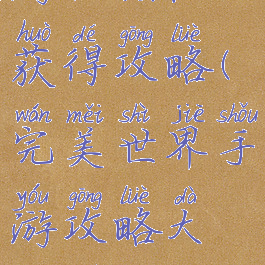 huò dé gōng lüè
获得攻略(
wán měi shì jiè shǒu
完美世界手
yóu gōng lüè dà
游攻略大